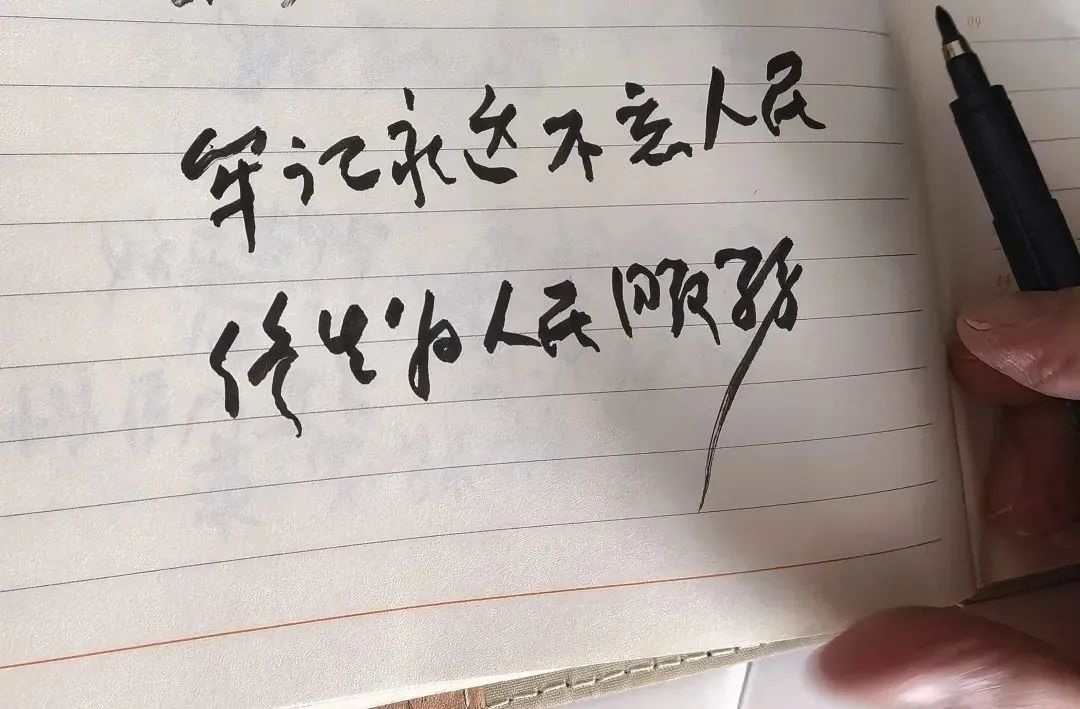 牢记永远不忘人民
终生为人民服务